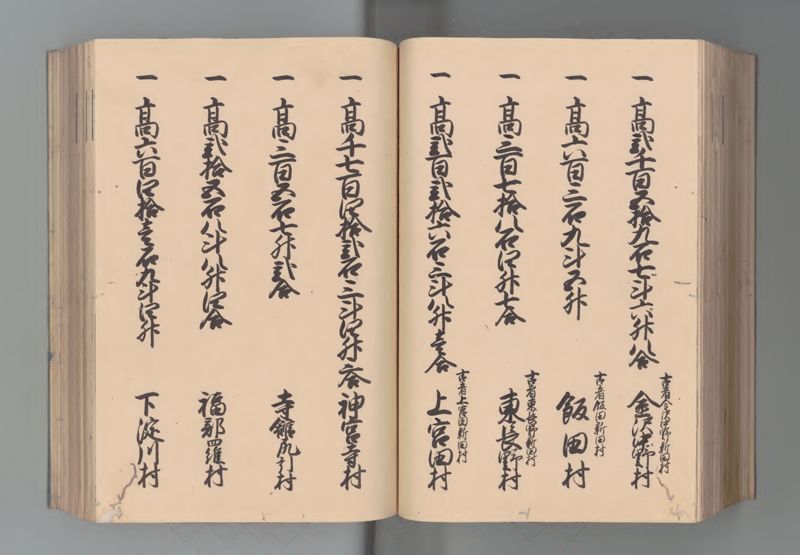 一 高弐千百五拾九石七斗六升八合 古者金沢中野新田村 金沢中野村
一 高六百三石九斗五升 古者飯田新田村 飯田村
一 高三百七拾八石四升七合 古者東長野新田村 東長野村
一 高弐百弐拾六石三斗八升壱合 古者上宮田新田村 上宮田村
一 高千七百四拾弐石三斗四升六合 神宮寺村
一 高三百五石七升弐合 寺館尻引村
一 高弐拾五石八斗八升四合 福部羅村
一 高六百四拾壱石九斗四升 下淀川村